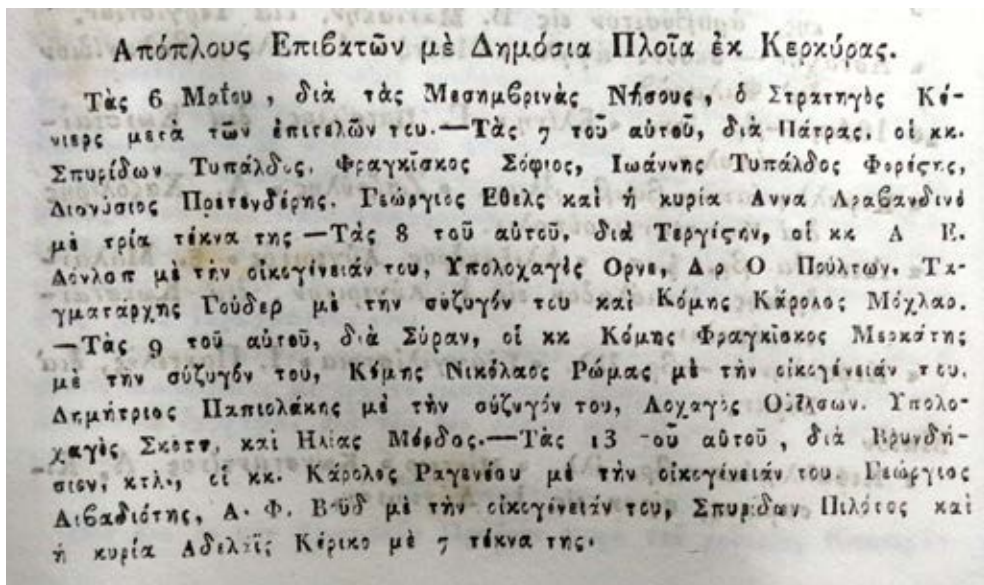 Απόπλους Επιβατῶν μὲ Δημόσια Πλοῖα ἐκ Κερκύρας.
Τὰς 6 Μαΐου, διὰ τὰς Μεσημβρινὰς Νήσους, ὁ Στρατηγὸς Κό-
νιερς μετὰ τῶν ἐπιτελῶν του.—Τὰς 7 τοῦ αὐτοῦ, διὰ Πάτρας, οἱ κκ.
Σπυρίδων Τυπάλδος, Φραγκῖσκος Σόφιος, Ιωάννης Τυπάλδος Φορέςης,
Διονύσιος Πρετενδέρης, Γεώργιος Εθελς καὶ ἡ κυρία Αννα Αραβανδινὲ
μὲ τρία τέκνα της —Τὰς 8 τοῦ αὐτοῦ, διὰ Τεργέςην, οἱ κκ Α Ε.
Δόνλοπ μὲ τὴν οἰκογένειάν του, Υπολοχαγὸς Ορνε, Δρ Ο Πούλτων, Τα-
γματάρχης Γούδερ μὲ τὴν σύζυγόν του καὶ Κόμης Κάρολος Μόχλαρ.
—Τὰς 9 τοῦ αὐτοῦ, διὰ Σύραν, οἱ κκ Κόμης Φραγκῖσκος Μερκάτης
μὲ τὴν σύζυγόν του, Κόμης Νικόλαος Ρώμας μὲ τὴν οἰκογένειάν του,
Δημήτριος Παπιολάκης μὲ τὴν σύζυγόν του, Λοχαγὸς Υπολο-
χαγὸς Σκοττ, καὶ Ηλίας Μόρδος.—Τὰς 13 τοῦ αὐτοῦ, διὰ Βρυνδή-
σιον, κτλ., οἱ κκ. Κάρολος Ραγενέου μὲ τὴν οἰκογένειάν του Γεώργιος
Λιβαδιότης, Α. Φ. Βοὺδ μὲ τὴν οἰκογένειάν του, Σπυρίδων Πιλότος καὶ
ἡ κυρία Αδελαῒς Κέρικο μὲ 7 τέκνα της.